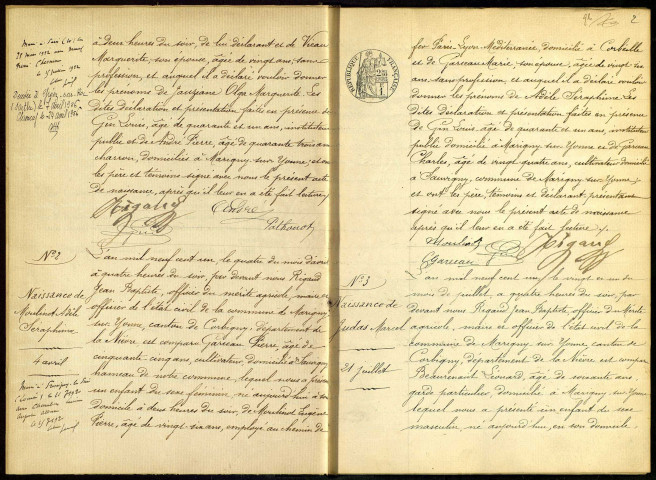 à deux heures du soir, de lui déclarant et de
Marguerite, son épouse, âgée de vingt ans, sans
profession, et auquel il a déclaré vouloir donner
les prénoms de Suzanne Olga Marguerite. Les
dites déclaration et présentation faites en présence de
Gin Louis, âgé de quarante et un ans, instituteur
public et de André Pierre, âgé de quarante trois ans
charron, domiciliés à Marigny-sur-Yonne; et ont
les père et témoins signé avec nous le présent acte
de naissance, après qu'il leur en a été fait lecture
Rigaud
André
Gin
N° 2
Naissance de
Moulinot Adèle
Séraphine
4 avril
L'an mil neuf cent un, le quatre du mois d'avril
à quatre heures du soir, par devant nous Rigaud
Jean Baptiste, officier du mérite agricole, maire et
officier de l'état civil de la commune de Marigny-
sur-Yonne, canton de Corbigny, département de
la Nièvre est comparu Garreau Pierre, âgé de
cinquante-cinq ans, cultivateur domicilié à Sauvigny
hameau de notre commune, lequel nous a présenté
un enfant du sexe féminin, né aujourd'hui à son
domicile à deux heures du soir, de Moulinot Eugène
Pierre, âgé de vingt six ans, employé au chemin de
2
RÉPUBLIQUE FRANÇAISE
fer Paris Lyon Méditerranée, domicilié à Corbeille
et de Garreau Marie, son épouse, âgée de vingt
ans, sans profession et auquel il a déclaré vouloir
donner les prénoms de Adèle Séraphine. Les
dites déclaration et présentation faites en présence
de Gin Louis, âgé de quarante et un ans, instituteur
public domicilié à Marigny-sur-Yonne et de Garreau
Charles, âgé de vingt quatre ans, cultivateur domicilié
à Sauvigny, commune de Marigny-sur-Yonne
et ont les père, témoins et déclarant présentant
signé avec nous le présent acte de naissance
après qu'il leur en a été fait lecture.
Moulinot
Gin
Rigaud
Garreau
N° 3
Naissance de
Judas Marcel
21 juillet
L'an mil neuf cent un, le vingt et un du
mois de juillet, à quatre heures du soir, par
devant nous Rigaud Jean Baptiste, officier du mérite
agricole, maire et officier de l'état civil de la
commune de Marigny-sur-Yonne, canton de
Corbigny, département de la Nièvre est comparu
Beaurenaut Léonard, âgé de soixante ans
garde particulier, domicilié à Marigny-sur-Yonne
lequel nous a présenté un enfant du sexe
masculin, né aujourd'hui, en son domicile